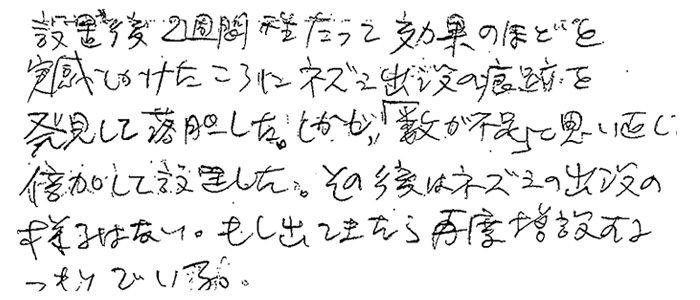 設置後2週間程たって効果のほどを
実感しかけたころにネズミ出没の痕跡を
発見して落胆した。しかし、「数が不足」と思い直して
倍加して設置した。その後はネズミの出没の
様子はない。もし出てきたら再度増設する
つもりでいる。